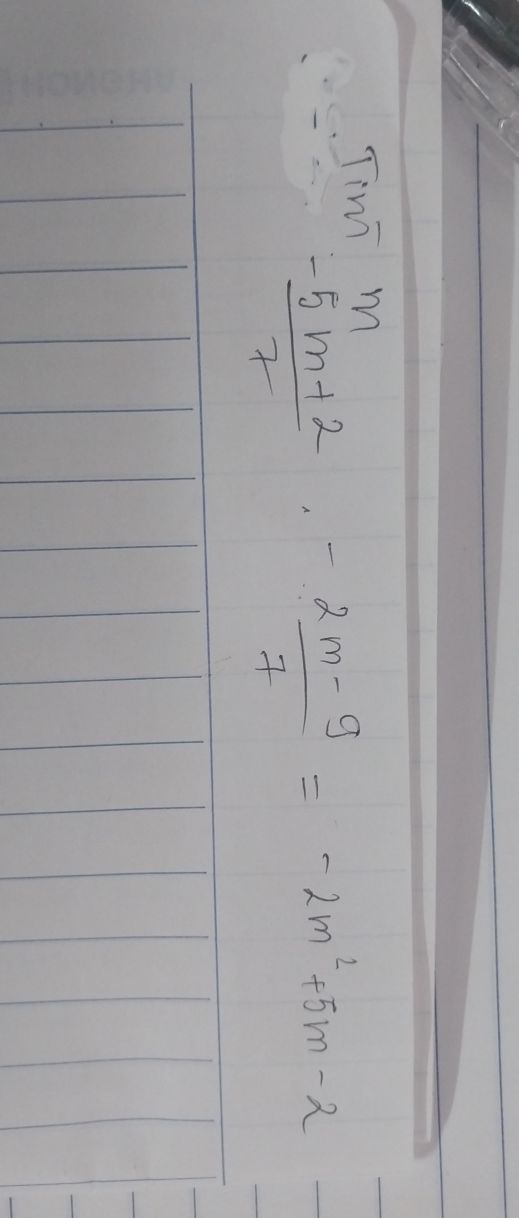 Tìm m
$\frac{-5m+2}{7} \cdot \frac{-2m-9}{7} = -2m^2+5m-2$